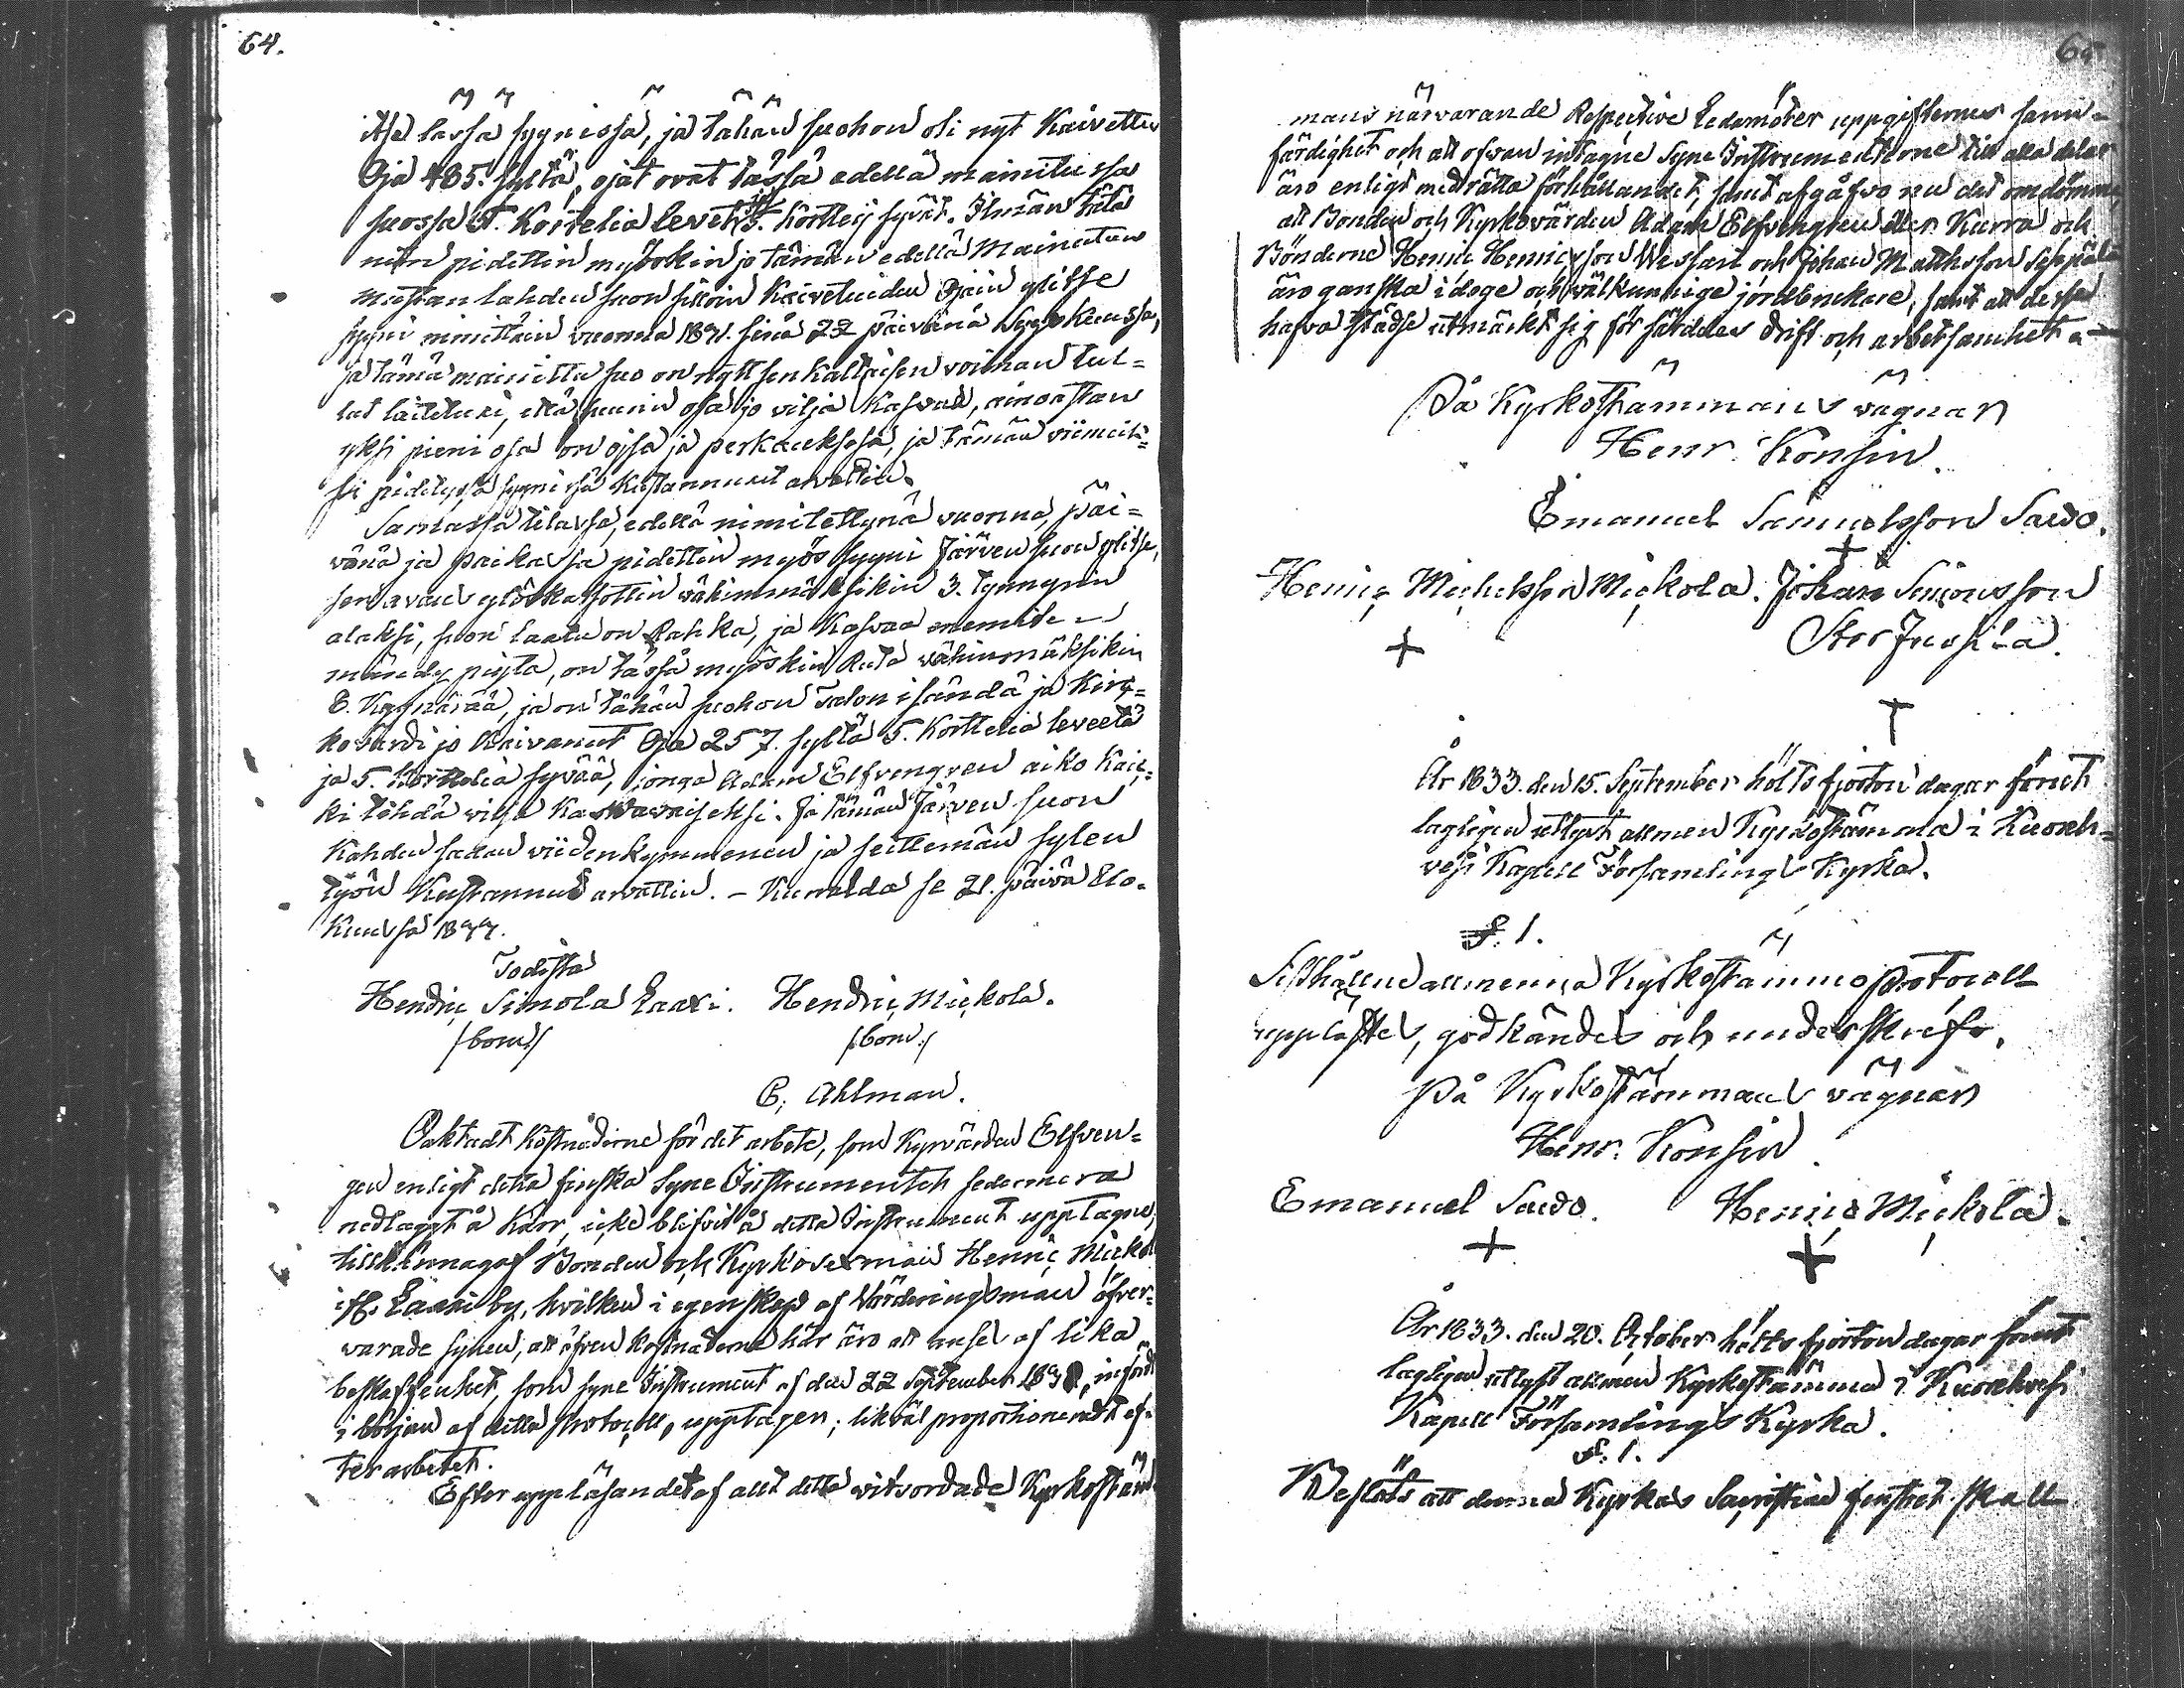 64.
itse tässä syynissä, ja tähän suohon oli nyt Kaivettu
Oja 485. syltä, ojat ovat tässä edellä mainitussa
suossa 5. Korttelia levet. ja 5. Kortteij syvät. Ilman tätä
niin pidettin myöskin jo tämän edellä Mainitun
lahden suon silloin Kaivetuiden Ojain ylitse
syyni nimittäin vuonna 1831. sinä 22 päivänä Syys Kuussa,
ja tämä mainittu suo on nytt senkaltaisen voiman tul=
lut laitetuxi, että suurin osa jo vilja Kasvaa, ainoastan
yksi pieni osa on ojsa ja perkauksesa, ja tämän viimeik=
si pidetyssä syynisä Kustannuxet arvattin.
Samassa tilassa, edellä nimitettynä vuonna, päi=
vänä ja paikassa pidettin myös syyni Järven suon ylitse,
sen avaus ylöskatsottin vähimmäksikin 3. tynnyrin
alaksi, suon laatu on Rahka, ja Kasvaa enemite
mändy puita, on tässä myöskin Ruta vähimmäksikin
6. Kyynärää, ja on tähän suohon Talon isändä ja Kirc=
ko värdi jo Kaivanut Oja 257. syltä 5. Korttelia leveetä
ja 5. Korttelia syvää, jonga Adam Elfvengren aiko Kaic=
ki tehdä vilja Kasvavaiseksi. Ja tämän Järven suon
Kahden sadan viidenkymmenen ja seittemän sylen
työn Kustannus arvattin. – Kurralda se 21. päivä Elo=
Kuussa 1833.
Todista
Hendric Simola Laaxi. Hendric Mickola.
/bom/ /:bom:/
C. Ahlman.
Oaktadt Kostnaderne för det arbete, som Kyrvärden Elfven=
gen enligt detta finska Syne Instrumentet sedermera
nedlaggt å Kärr, icke blifvit å detta Instrument upptagne,
tillkännagaf Bonden och Kyrkosexman Henric Mickola
ifr. Laaxi by, hvilken i egenskap af Värderingsman öfver=
varade synen, att äfven kostnaderne här äro att anse af lika
beskaffenhet, som syne Instrument af den 22 September 1831, införd
i början af detta Protocoll, upptagen; likväl proportioneradt ef=
ter arbetet.
Efter uppläsandet af allt detta vitsordade Kyrkostäm
65
mans närvarande Respective Ledamöter uppgifternes sann=
färdighet och att ofvan intagne Syne Instrumenterne till alla delar
äro enligt med rätta förhållandet, samt afgåfvo nu det omdömme,
att Bonden och Kyrkovärden Adam Elfvengren eller Kurra och
Bönderne Henric Henricsson Wessari och Johan Matthsson Seppälä
äro ganska idoge och välkunnige jordbrukare, samt att desse
hafva städse utmärkt sig för särdeles drift och arbetsamhet.
På Kyrkostämmans vägnar
Henr. Konsin.
Emanuel Samuelsson Saido.
Henric Michelsson Mickola. Johan Simonsson
Stor Jussila.
År 1833. den 15. September hölts fjorton dagar förut
lagligen utlyst allmen Kyrkostämma i Kuoreh=
vesi Kapell Församlings Kyrka.
§. 1.
Sisthållne allmenna Kyrkostämmo Protocoll
upplästes, godkändes och underskrefs.
På Kyrkostämmans vägnar
Henr. Konsin
Emanuel Saido. Henric Mickola.
År 1833. den 20. October hölts fjorton dagar förut
lagligen utlyst allmen Kyrkostämma i Kuorehvesi
Kapell Församlings Kyrka.
§. 1.
Beslöts att denna Kyrkas Sacristie fenstret skall